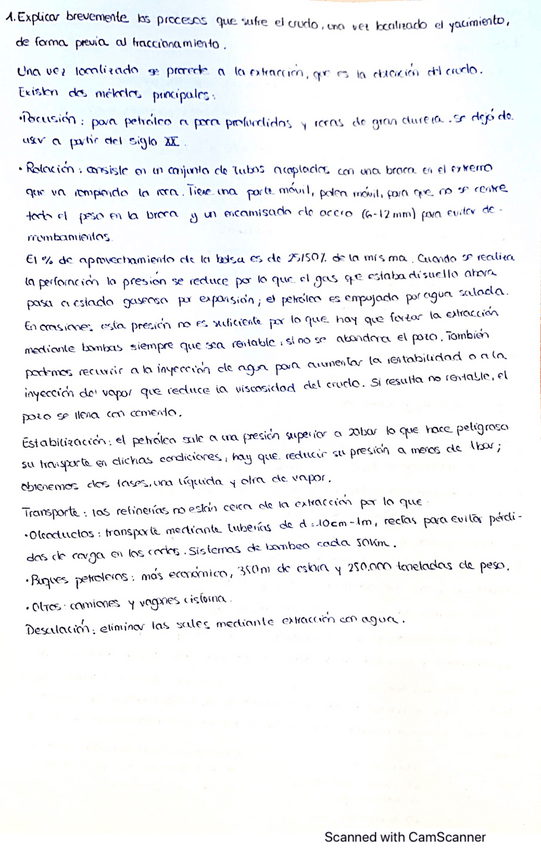 1. Explicar brevemente los procesos que sufre el crudo, una vez localizado el yacimiento,
de forma previa al fraccionamiento.
Una vez localizado se procede a la extracción, que es la obtención del crudo.
Existen dos métodos principales:
• Percusión: para petróleo a poca profundidas y rocas de gran dureza. Se dejó de
usar a partir del siglo XX.
• Rotación: consiste en un conjunto de tubos acoplados con una broca en el extremo
que va rompiendo la roca. Tiene una parte móvil, polea móvil, para que no se centre
todo el peso en la broca y un encamisado de acero (6-12 mm) para evitar de-
rrumbamientos.
El % de aprovechamiento de la bolsa es de 25/50% de la misma. Cuando se realiza
la perforación la presión se reduce por lo que el gas que estaba disuelto ahora
pasa a estado gaseoso por expansión; el petróleo es empujado por agua salada.
En ocasiones esta presión no es suficiente por lo que hay que forzar la extracción
mediante bombas siempre que sea rentable, si no se abandona el pozo. También
podemos recurrir a la inyección de agua para aumentar la rentabilidad o a la
inyección de vapor que reduce la viscosidad del crudo. Si resulta no rentable, el
pozo se llena con cemento.
Estabilización: el petróleo sale a una presión superior a 20bar lo que hace peligroso
su transporte en dichas condiciones, hay que reducir su presión a menos de 1bar;
obtenemos dos fases, una líquida y otra de vapor.
Transporte: las refinerías no están cerca de la extracción por lo que
• Oleoductos: transporte mediante tuberías de d: 10cm-1m, rectas para evitar pérdi-
das de carga en los codos. Sistemas de bombeo cada 50Km.
• Buques petroleros: más económico, 350m de eslora y 250.000 toneladas de peso.
• Otros: camiones y vagones cisterna.
Desalación: eliminar las sales mediante extracción con agua.
Scanned with CamScanner